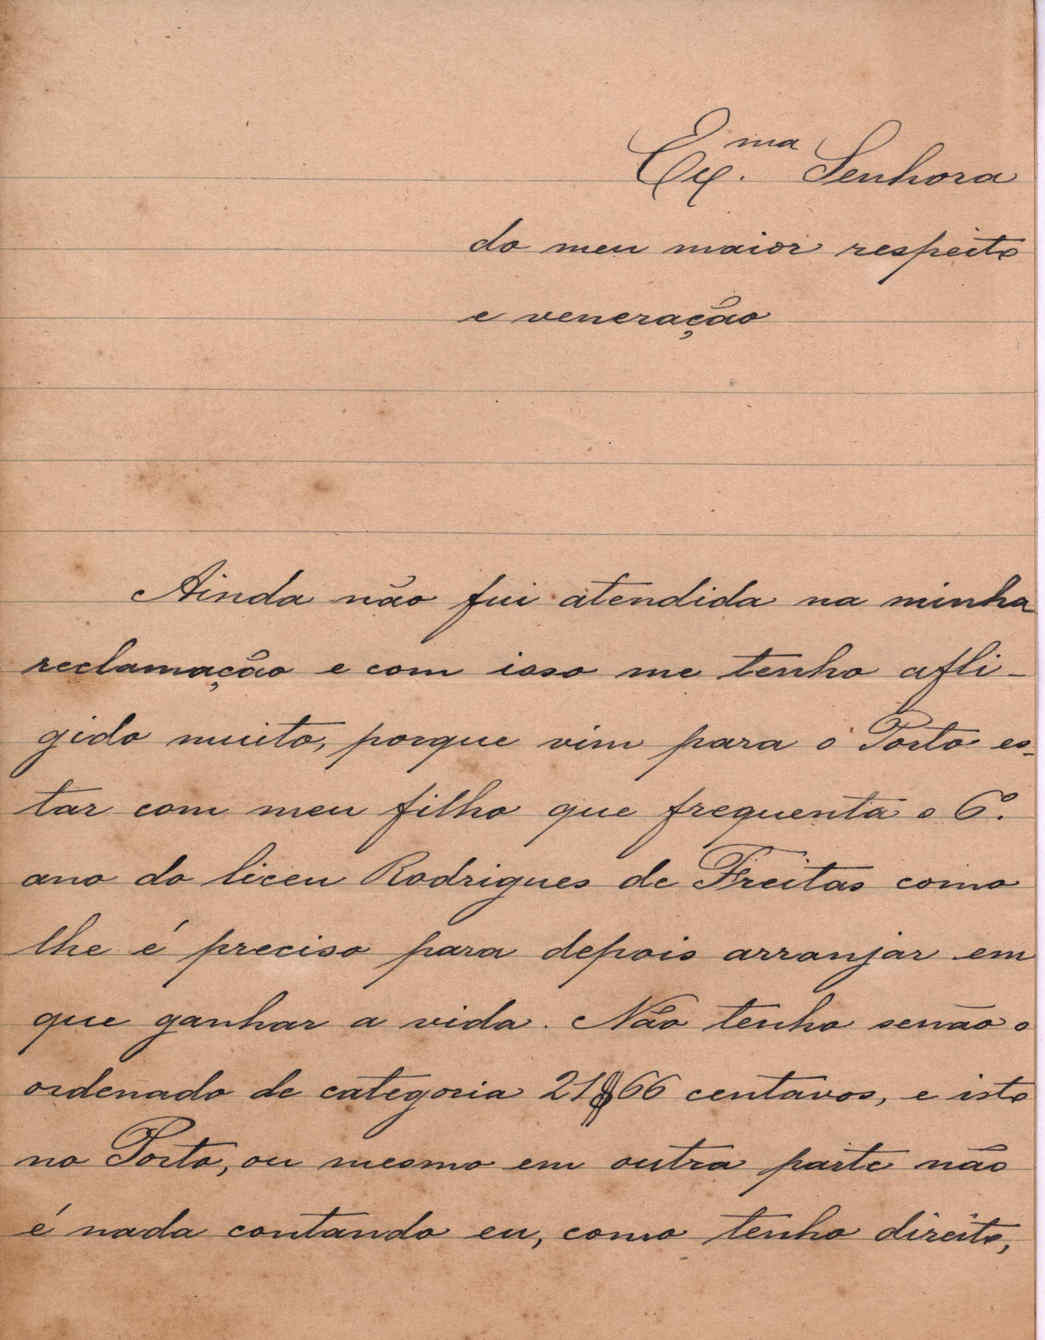 Ex.ma Senhora
do meu maior respeito
e veneração
Ainda não fui atendida na minha
reclamação e com isso me tenho afli-
gido muito, porque vim para o Porto es-
tar com meu filho que frequenta o 6º.
ano do liceu Rodrigues de Freitas como
lhe é preciso para depois arranjar em
que ganhar a vida. Não tenho senão o
ordenado de categoria 21$66 centavos, e isto
no Porto, ou mesmo em outra parte não
é nada contando eu, como tenho direito,